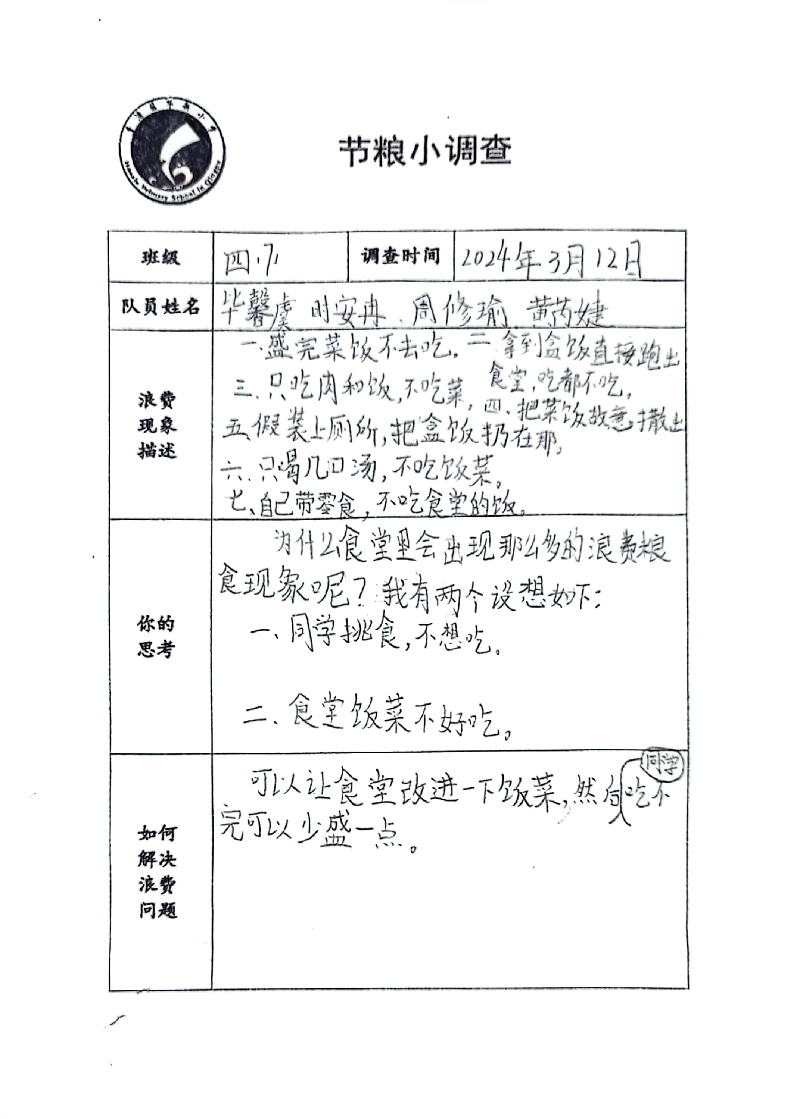 节粮小调查
班级 四.7 调查时间 2024年3月12日
队员姓名 毕馨虞 时安冉 周修瑜 黄芮婕
浪费
现象
描述
一.盛完菜饭不去吃。 二.拿到盒饭直接跑出
食堂,吃都不吃。
三、只吃肉和饭,不吃菜。 四、把菜饭故意撒出
五、假装上厕所,把盒饭扔在那。
六、只喝几口汤,不吃饭菜。
七、自己带零食,不吃食堂的饭。
你的
思考
为什么食堂里会出现那么多的浪费粮
食现象呢?我有两个设想如下:
一、同学挑食,不想吃。
二、食堂饭菜不好吃。
如何
解决
浪费
问题
可以让食堂改进一下饭菜,然后同学吃不
完可以少盛一点。